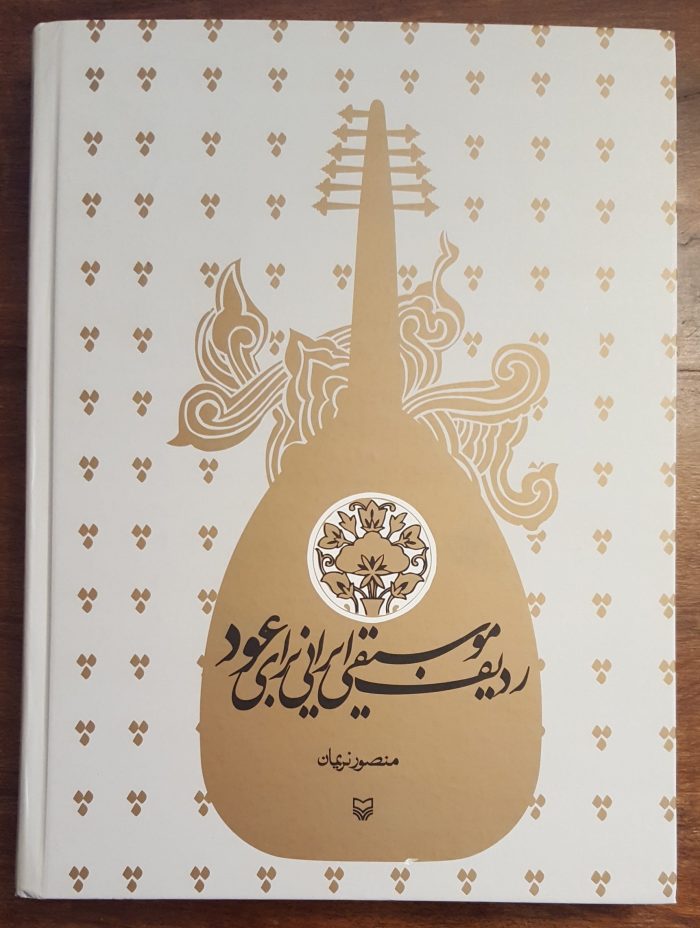 ردیف موسیقی ایرانی برای عود
منصور نریمان